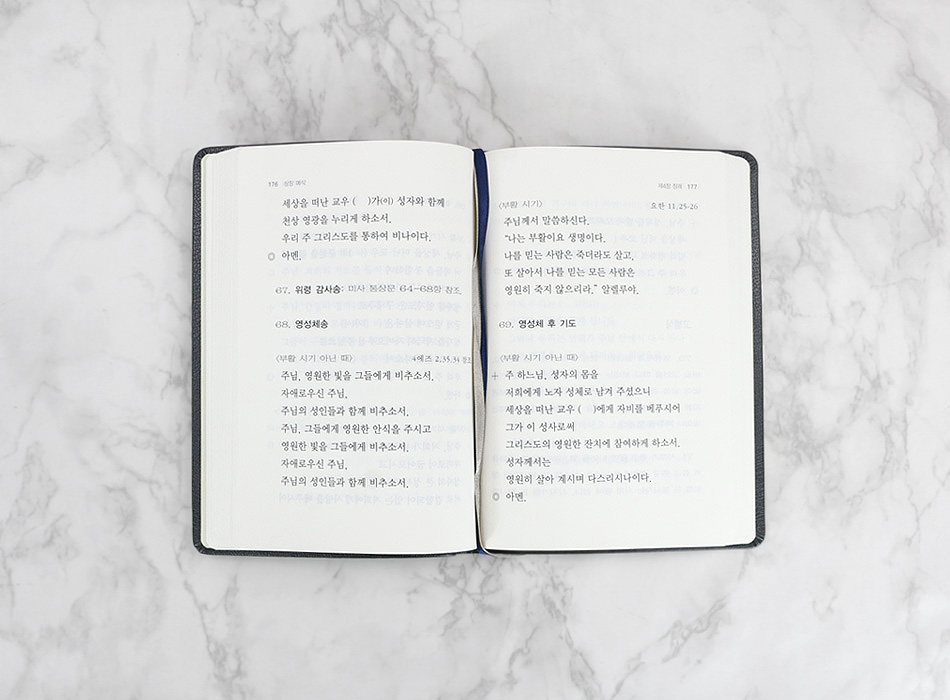 176 상장 예식
세상을 떠난 교우 (    )가(이) 성자와 함께
천상 영광을 누리게 하소서.
우리 주 그리스도를 통하여 비나이다.
◎ 아멘.
67. 위령 감사송: 미사 통상문 64-68항 참조
68. 영성체송
〈부활 시기 아닌 때〉 4에즈 2,35.34 참조
주님, 영원한 빛을 그들에게 비추소서.
자애로우신 주님,
주님의 성인들과 함께 비추소서.
주님, 그들에게 영원한 안식을 주시고
영원한 빛을 그들에게 비추소서.
자애로우신 주님,
주님의 성인들과 함께 비추소서.
제4장 장례 177
〈부활 시기〉 요한 11,25-26
주님께서 말씀하신다.
“나는 부활이요 생명이다.
나를 믿는 사람은 죽더라도 살고,
또 살아서 나를 믿는 모든 사람은
영원히 죽지 않으리라.” 알렐루야.
69. 영성체 후 기도
〈부활 시기 아닌 때〉
+ 주 하느님, 성자의 몸을
저희에게 노자 성체로 남겨 주셨으니
세상을 떠난 교우 (    )에게 자비를 베푸시어
그가 이 성사로써
그리스도의 영원한 잔치에 참여하게 하소서.
성자께서는
영원히 살아 계시며 다스리시나이다.
◎ 아멘.